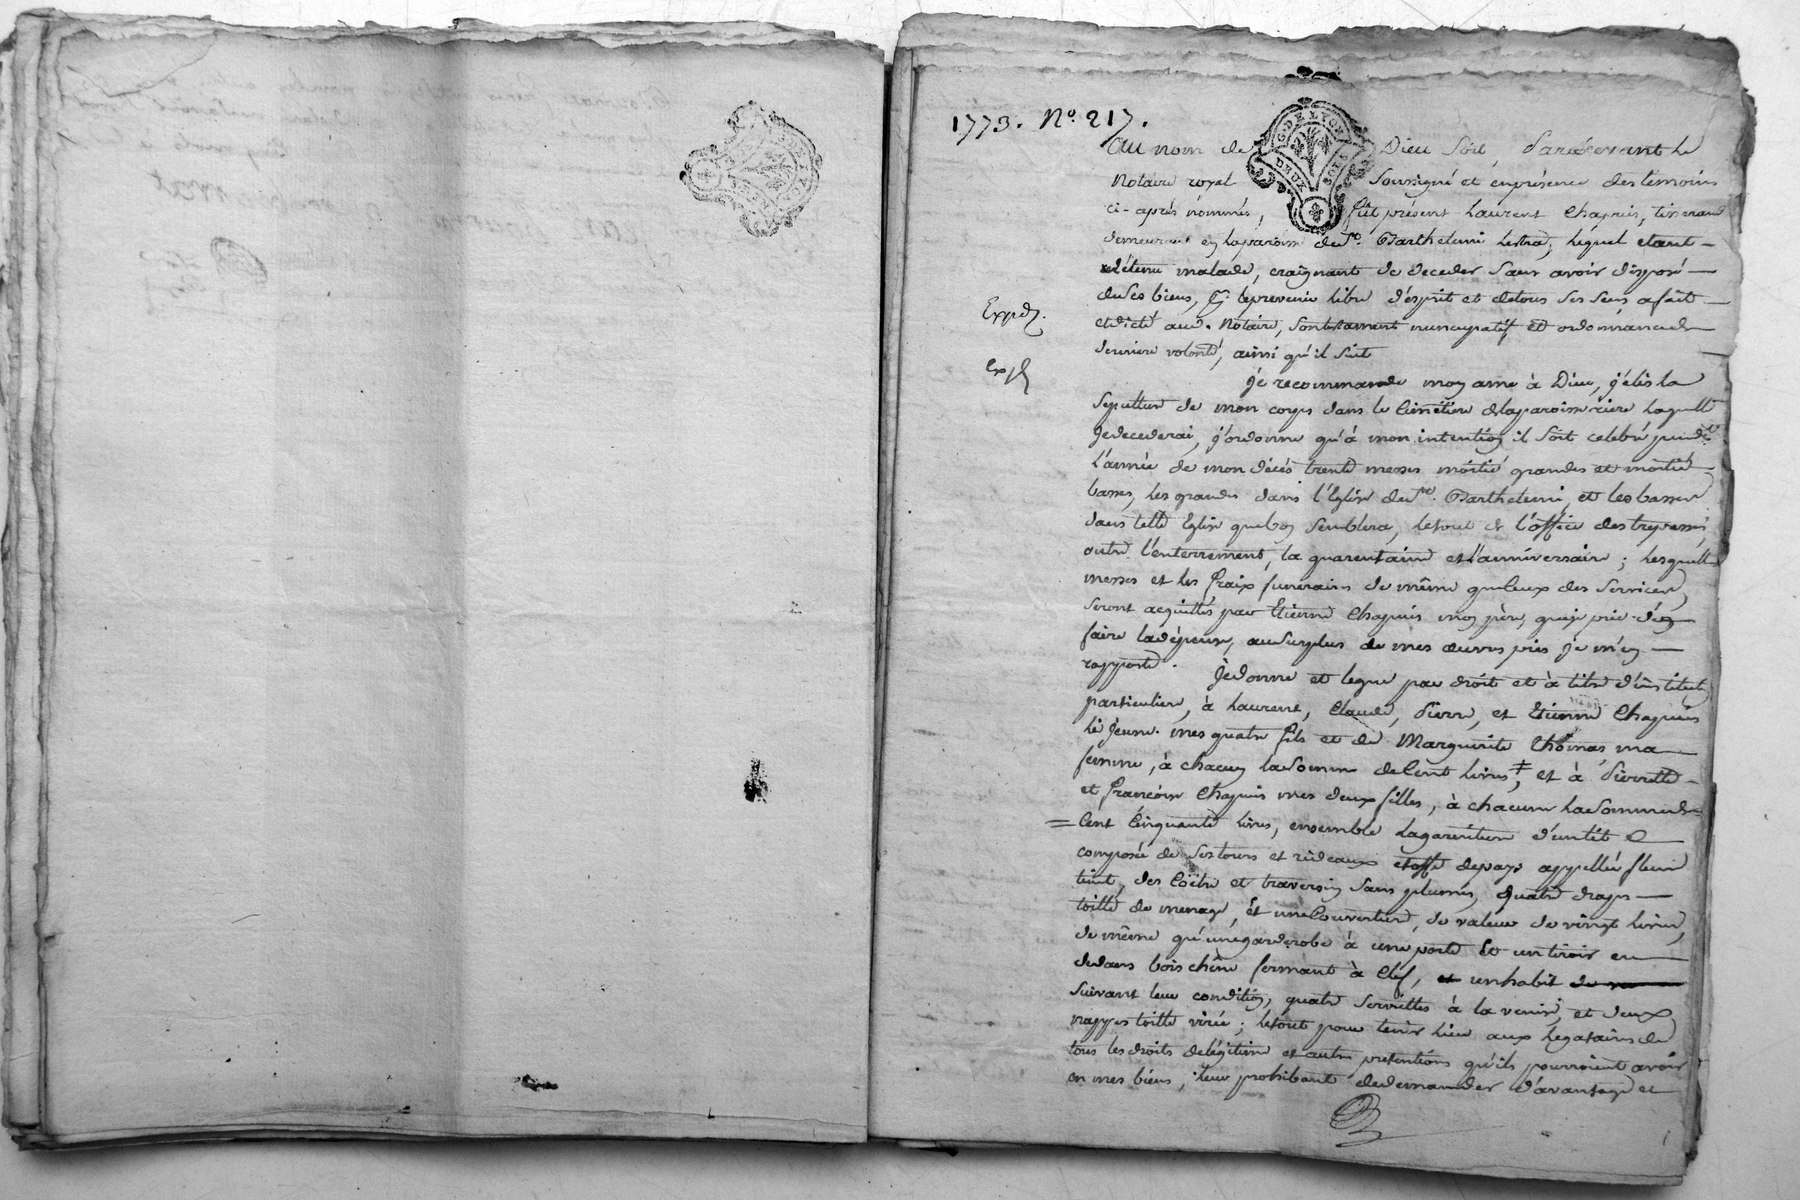 1773. No. 217.
G. DE LYON
DEUX SOLS
Au nom de Dieu soit, Pardevant le
Notaire royal soussigné et en présence des temoins
ci-après nommés, fût présent Laurent Chapuis, tisserand
demeurant en la paroisse de St. Barthelemi Lestra, lequel etant
détenu malade, craignant de deceder sans avoir disposé
de ses biens, libre d'esprit et de tous ses sens a fait
et dicté aud. Notaire, son testament nuncupatif et ordonnance de
derniere volonté, ainsi qu'il suit
Exped.
Exp.
Je recommande mon ame à Dieu, j'élis la
sepulture de mon corps dans le Cimetiere de la paroisse riere laquelle
je decederai, j'ordonne qu'à mon intention il soit celebré pendt.
l'année de mon décés trente messes moitié grandes et moitié
basses, les grandes dans l'Eglise de St. Barthelemi, et les basses
dans telle Eglise que bon semblera, le tout de l'office des trepassés,
outre l'enterrement, la quarentaine et l'anniversaire ; lesquelles
messes et les fraix funeraires de même que ceux des services,
seront acquittés par Etienne Chapuis mon père, que je prie d'en
faire la dépense, au surplus de mes œuvres pies je m'en
rapporte. Je donne et legue par droit et à titre d'institution
particuliere, à Laurent, Claude, Pierre, et Etienne Chapuis
le jeune mes quatre fils et de Marguerite Thomas ma
femme, à chacun la somme de Cent livres, et à Pierrette
et Françoise Chapuis mes deux filles, à chacune la somme de
Cent Cinquante livres, ensemble la garniture d'un lit
composée de ses tours et rideaux etoffe de pays appellée
teint, des Coëtre et traversin sans plumes, quatre draps
toille de menage, et une Couverture, de valeur de vingt livres,
de même qu'une garderobe à une porte et un tiroir au
dedans bois chêne fermant à Clef, et un habit
suivant leur condition, quatre serviettes à la venise, et deux
nappes toille ; le tout pour tenir lieu aux legataires de
tous les droits de légitime et autres pretentions qu'ils pourroient avoir
en mes biens, leur prohibant de demander d'avantage et